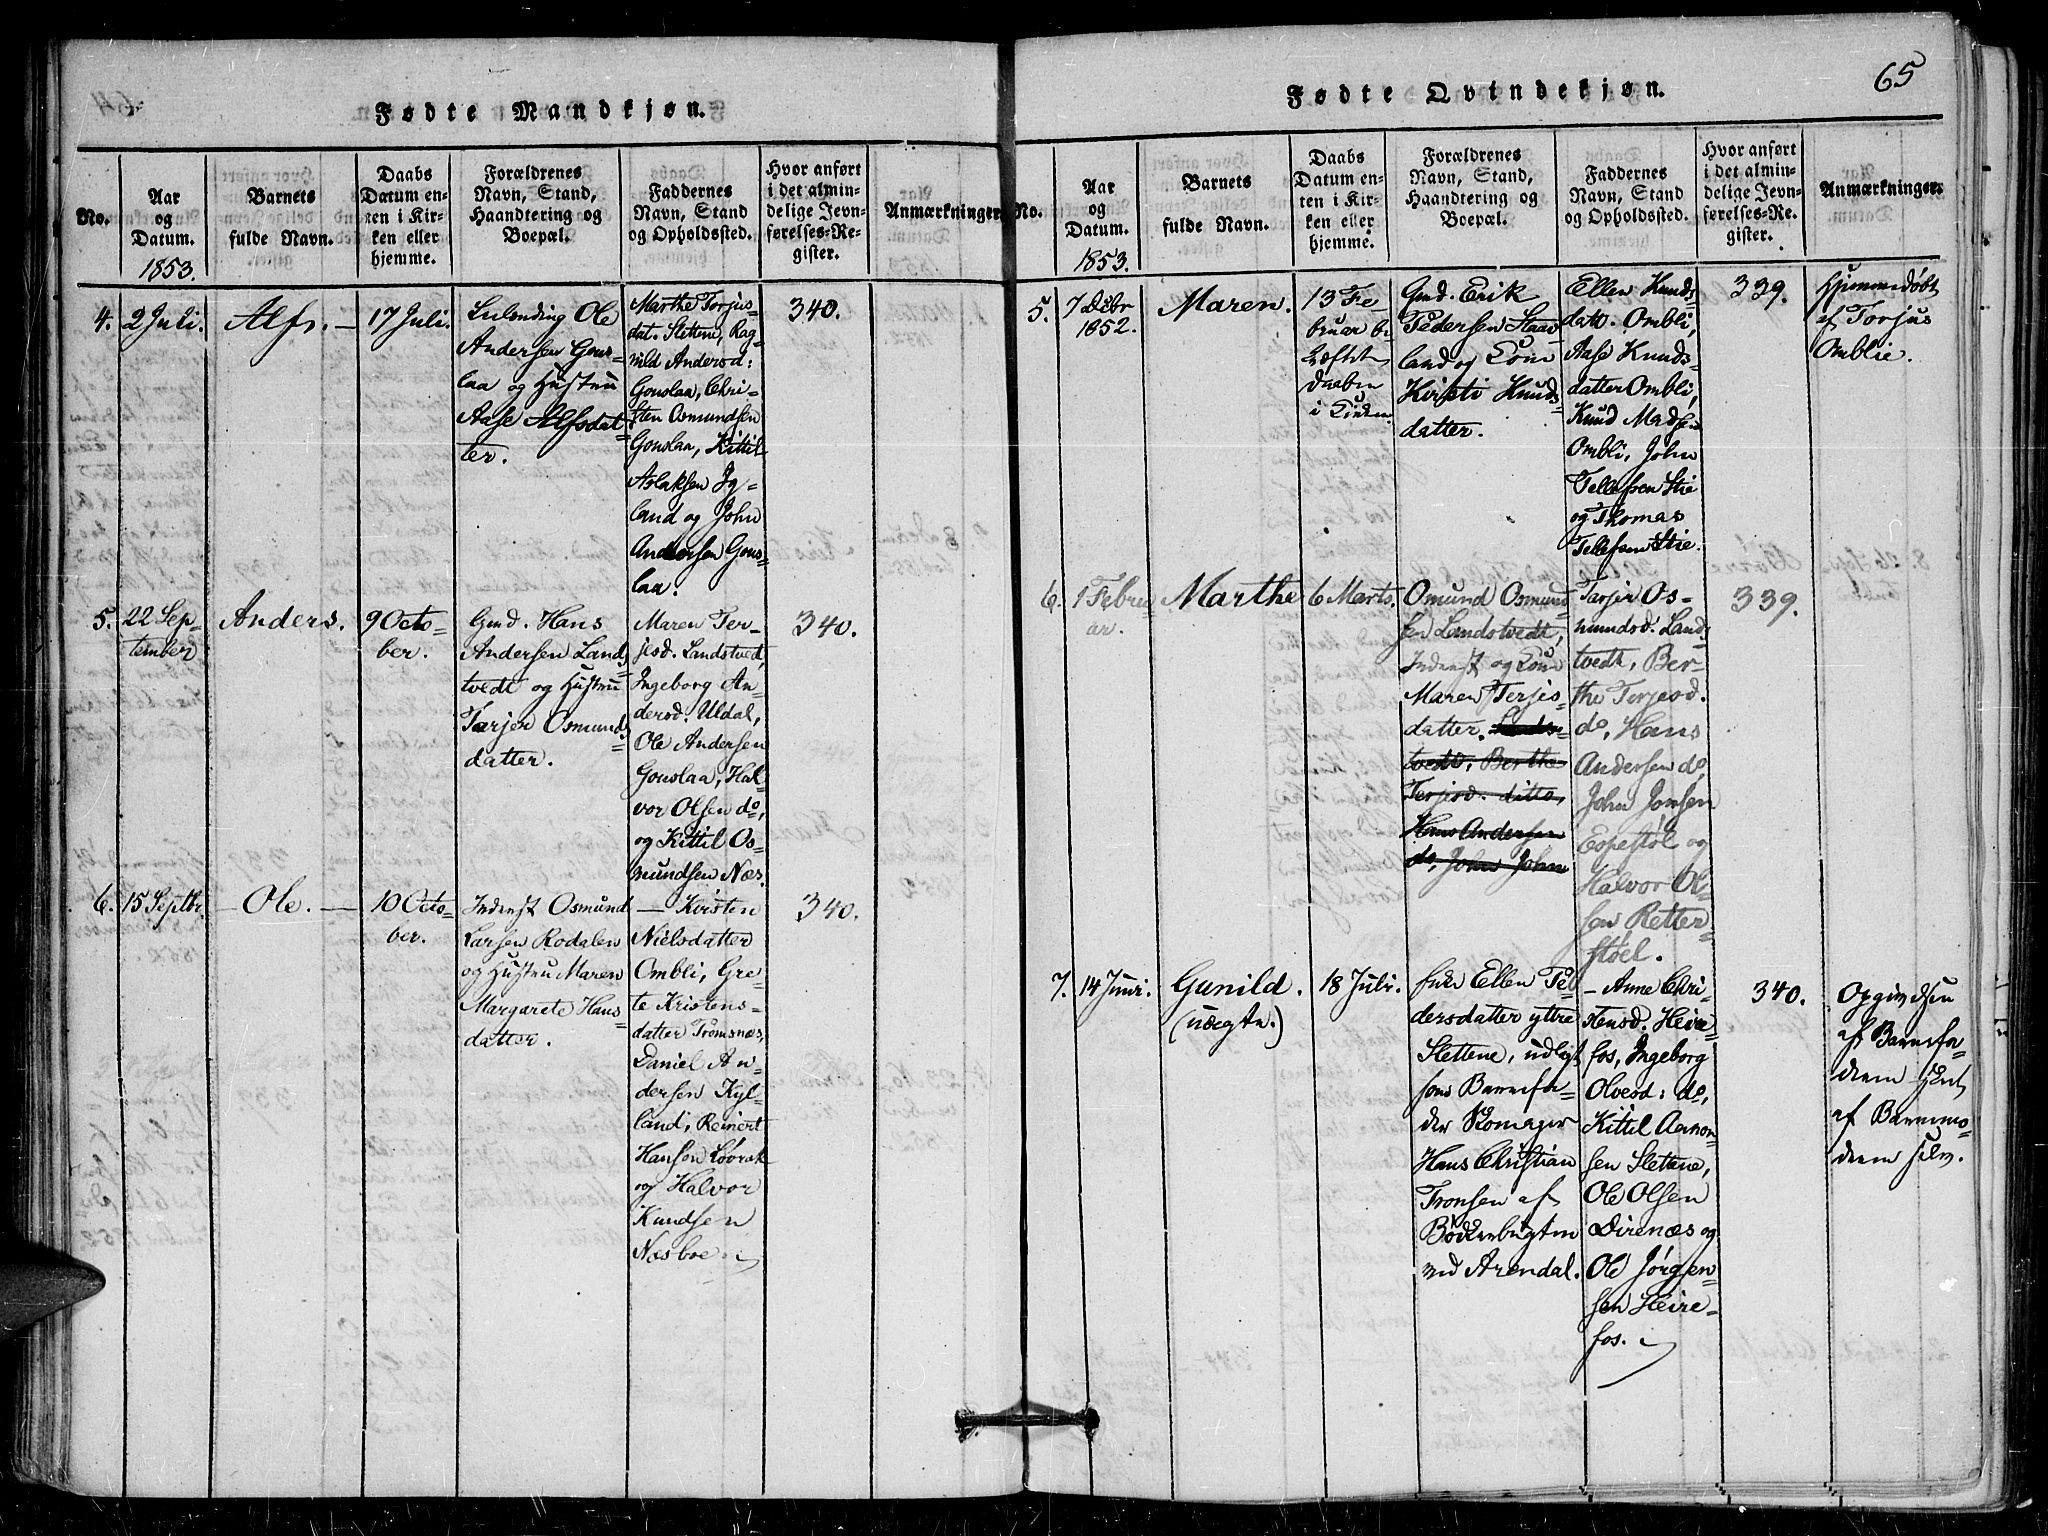 Fødte Mandkjøn.
No.
Aar
og
Datum.
1853.
Barnets
fulde Navn.
Daabs
Datum en-
ten i Kir-
ken eller
hjemme.
Forældrenes
Navn, Stand,
Haandtering og
Boepæl.
Faddernes
Navn, Stand
og Opholdssted.
Hvor anført
i det almin-
delige Jevn-
førelses-Re-
gister.
Anmærkninger.
4.
2 Juli.
Alf. —
17 Juli.
Leilending Ole
Andersen Gous-
laa og Hustru
Aase Alfsdat-
ter.
Marthe Torjus-
dat. Slettene, Rag-
nild Andersd:
Gouslaa, Chri-
sten Osmundsen
Gouslaa, Kittil
Aslaksen Ig-
land og John
Andersen Gous-
laa.
340.
5.
22 Sep-
tember
Anders.
9 Octo-
ber.
Gmd. Hans
Andersen Land-
tvedt og Hustru
Tarjer Osmund-
datter.
Maren Ter-
jesd. Landstvedt,
Ingeborg An-
dersd. Uldal,
Ole Andersen
Gouslaa, Hal-
vor Olsen do,
og Kittil Os-
mundsen Næs.
340.
6.
15 Septbr.
Ole. —
10 Octo-
ber.
Inderst Osmund
Larsen Rodalen
og Hustru Maren
Margarete Hans-
datter.
— Kirsten
Nielsdatter
Ombli, Gre
te Kristens-
datter Tromsnæs,
Daniel An-
dersen Kyl-
land, Reinert
Hansen Løvrak
og Halvor
Knudsen
Nesboe.
340.
65
Fødte Qvindekjøn.
No.
Aar
og
Datum.
1853.
Barnets
fulde Navn.
Daabs
Datum en-
ten i Kir-
ken eller
hjemme.
Forældrenes
Navn, Stand,
Haandtering og
Boepæl.
Faddernes
Navn, Stand
og Opholdssted.
Hvor anført
i det almin-
delige Jevn-
førelses-Re-
gister.
Anmærkninger.
5.
7 Debr
1852.
Maren.
13 Fe
bruar be
kræftet
Daaben
i Kirken
Gmd. Erik
Pedersen Staa-
land og Kone
Kirsti Knuds-
datter.
Ellen Knuds-
datt. Ombli,
Aase Knuds-
datter Ombli,
Knud Madsen
Ombli, John
Tellefsen Stie
og Thomas
Tellefsen Stie.
339.
Hjemmedøbt
af Torjus
Omblie.
6.
1 Febru
ar.
Marthe
6 Marts.
Omund Osmund
sen Landstvedt,
Inderst og Kone
Maren Terjes-
datter. Lands-
tvedt, Berthe
Terjesd. ditto,
Hans Andersen
do, John John
Tarjer Os-
mundsd. Lands-
tvedt, Ber-
the Terjesd.
do, Hans
Andersen do
John Jonsen
Espestøl og
Halvor Ol-
sen Retter-
støel.
339.
7.
14 Juni.
Gunild.
(uægte.)
18 Juli.
Pige Ellen Pe
dersdatter yttre
Slettene, udlagt
som Barnefa-
der Skomager
Hans Christian
Tronsen af
Bødkerbugten
ved Arendal.
— Anne Chri-
stensd. Heire-
fos, Ingeborg
Olvesd: do,
Kittil Aanon-
sen Slettene,
Ole Olsen
Direnæs og
Ole Jørgen-
sen Heire-
fos.
340.
Opgivelsen
af Barnefa-
deren skeet
af Barnemo-
deren selv.